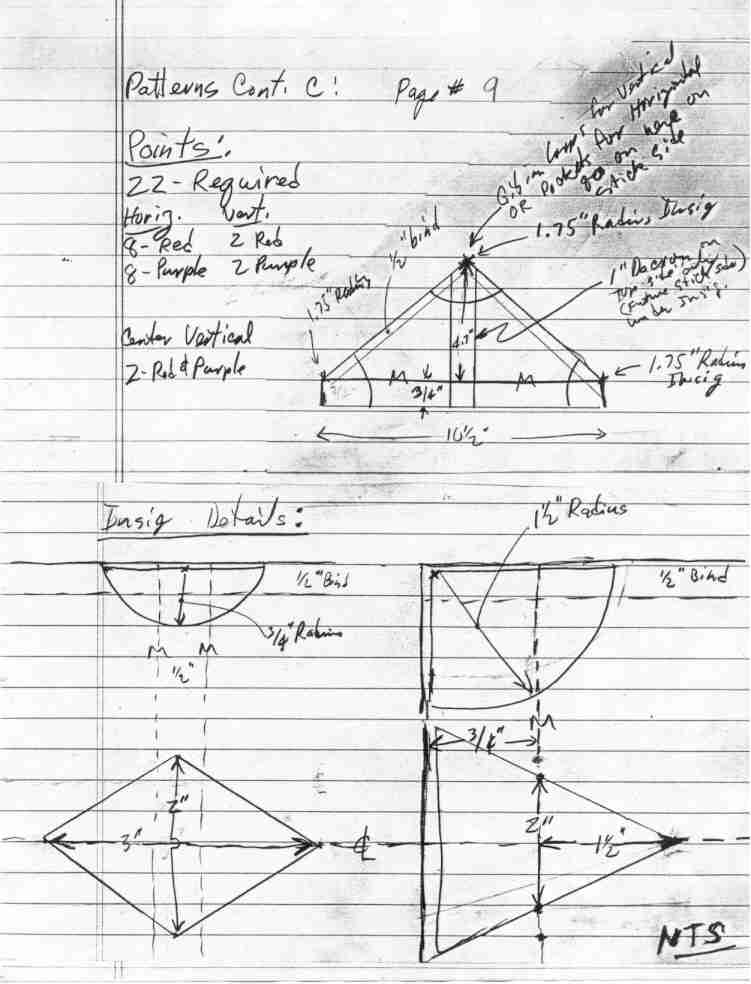 Patterns Cont. C: Page # 9
Points:
22 - Required
Horiz. Vert.
8 - Red 2 Red
8 - Purple 2 Purple
Center Vertical
2 - Red & Purple
Loops for Vertical
OR Pockets for Horizontal
go on here on
stick side
1.75" Radius Insig
1/2" bind
1.75" Radius
1" Dacron on
type side only
(Future stick side)
under Insig.
1.75" Radius
Insig
M
3/4"
M
10 1/2"
Insig Details:
1 1/2" Radius
1/2" Bind
1/2" Bind
3/4" Radius
M M
1/2"
M
3/4"
2"
3"
CL
2"
1 1/2"
NTS